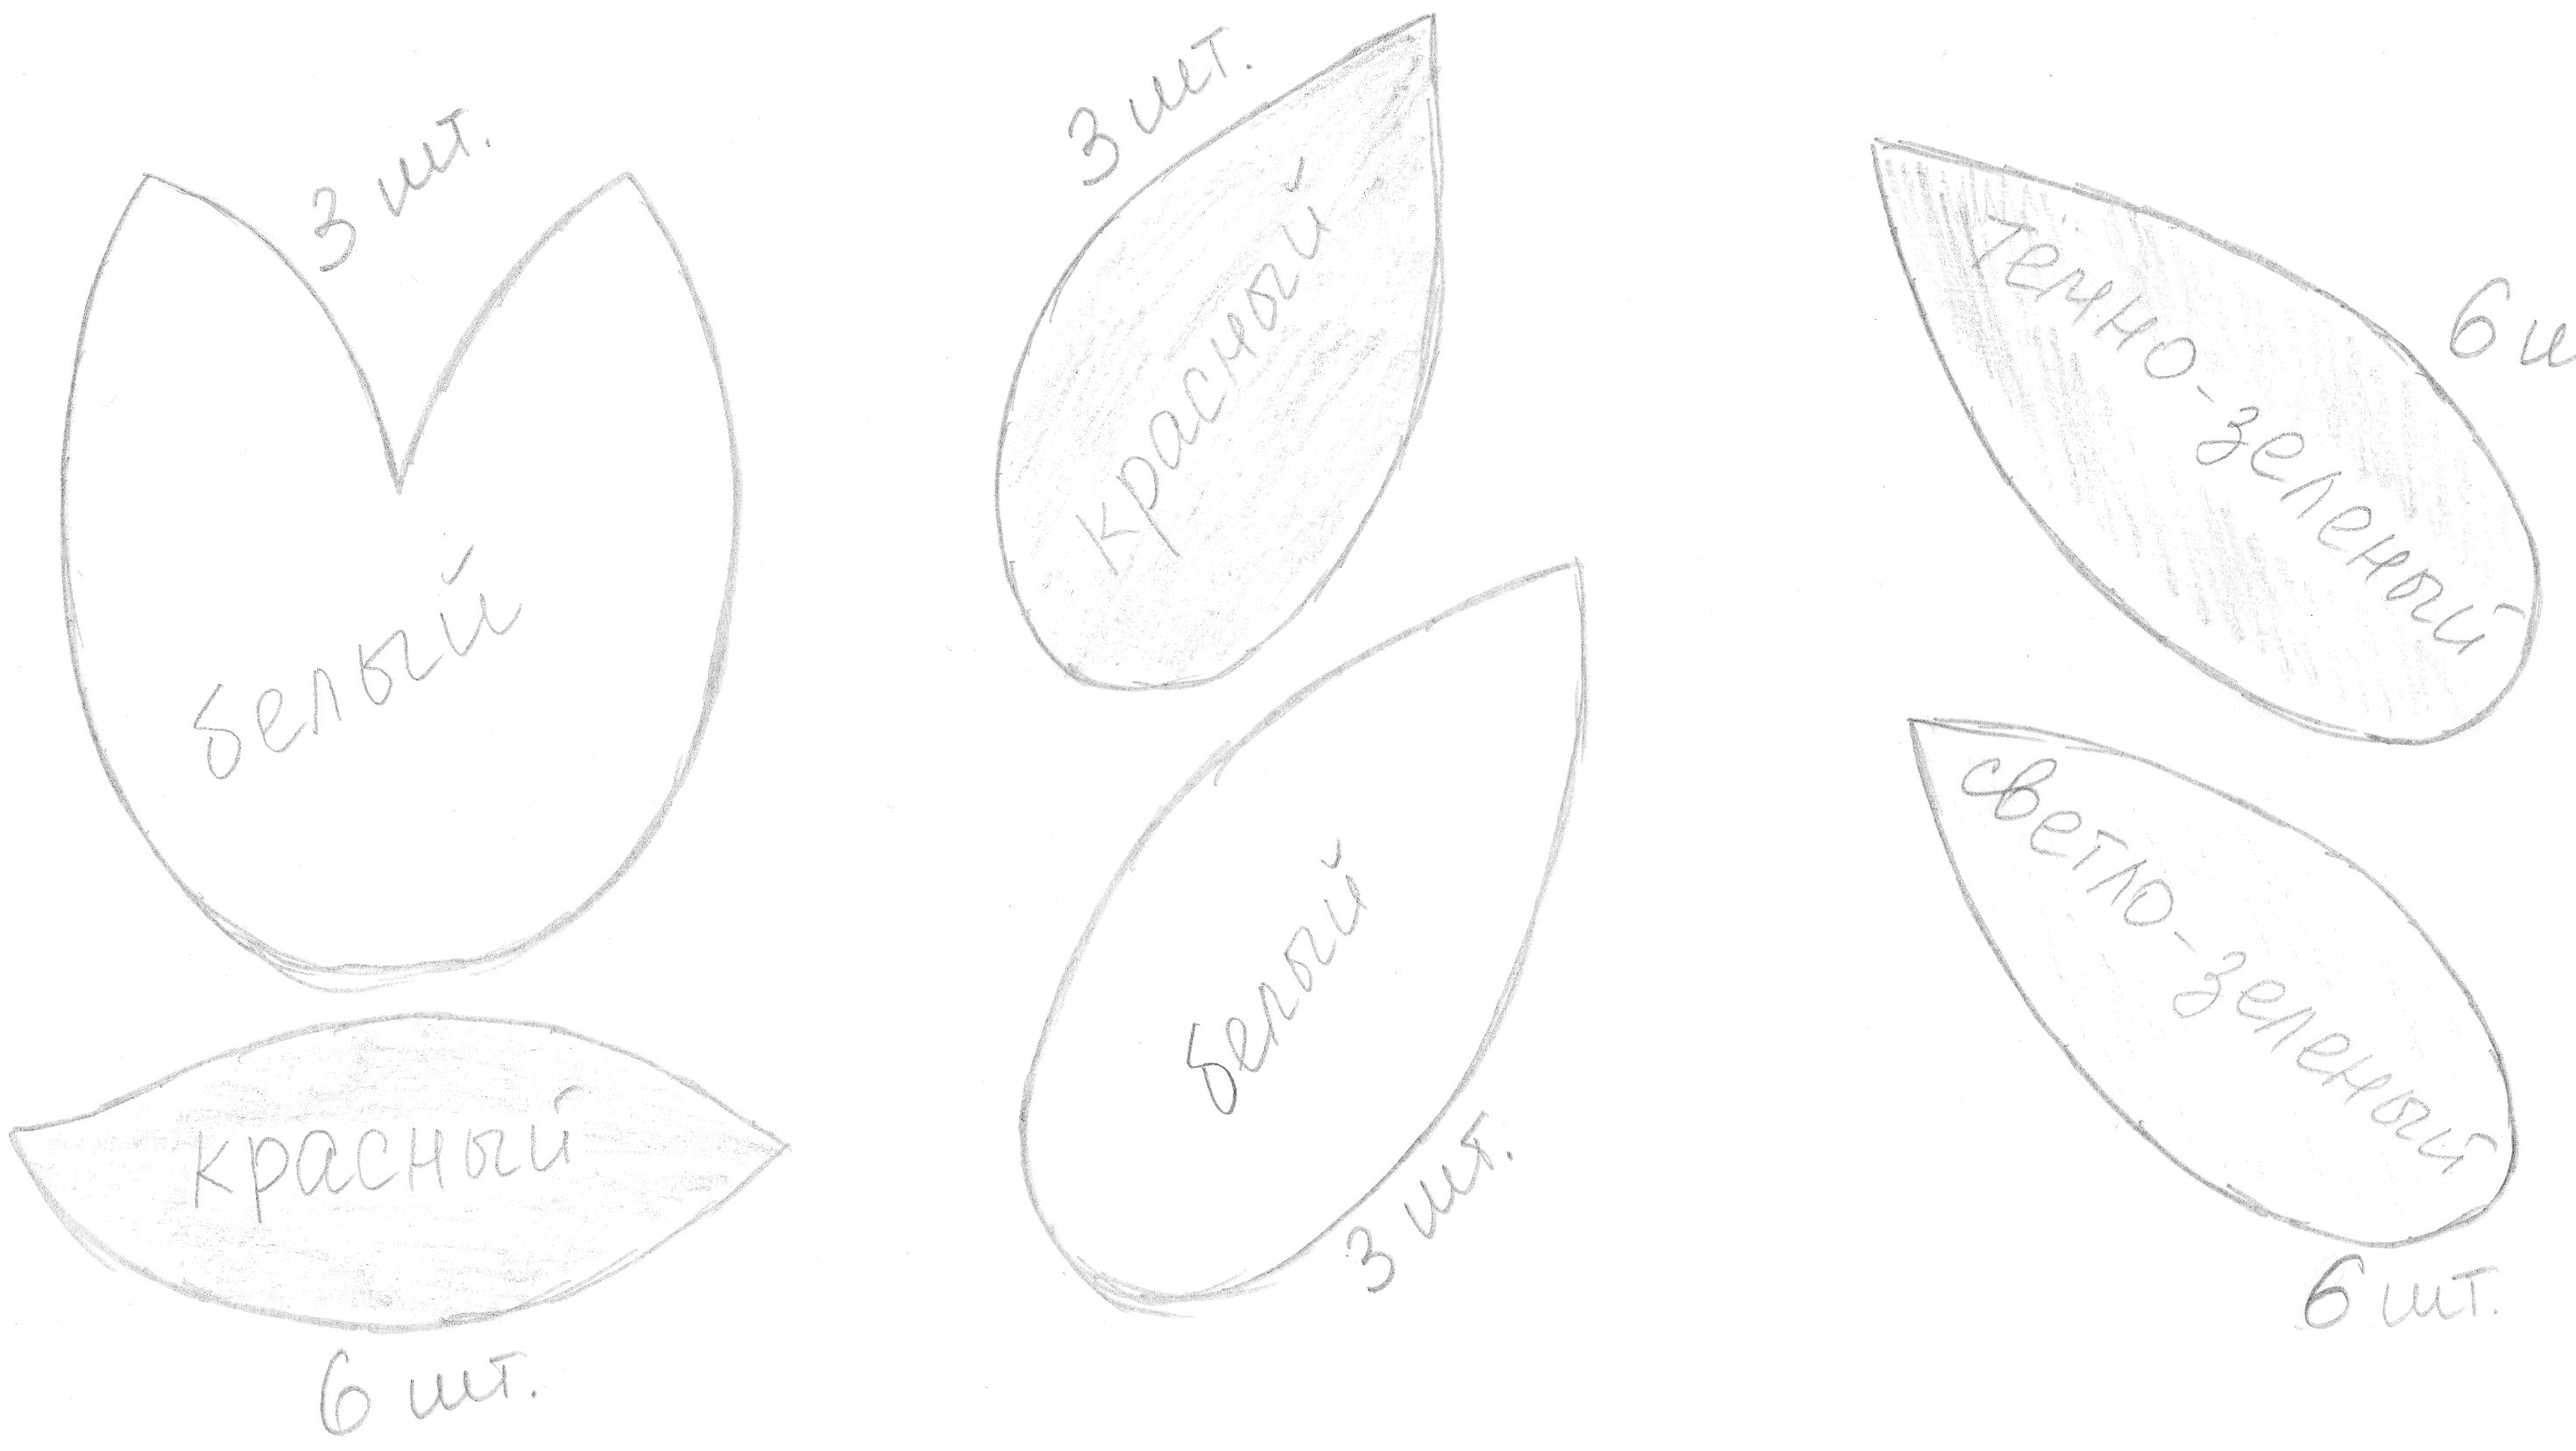 3 шт.
белый
красный
6 шт.
3 шт.
красный
белый
3 шт.
темно-зеленый
6 ш
светло-зеленый
6 шт.